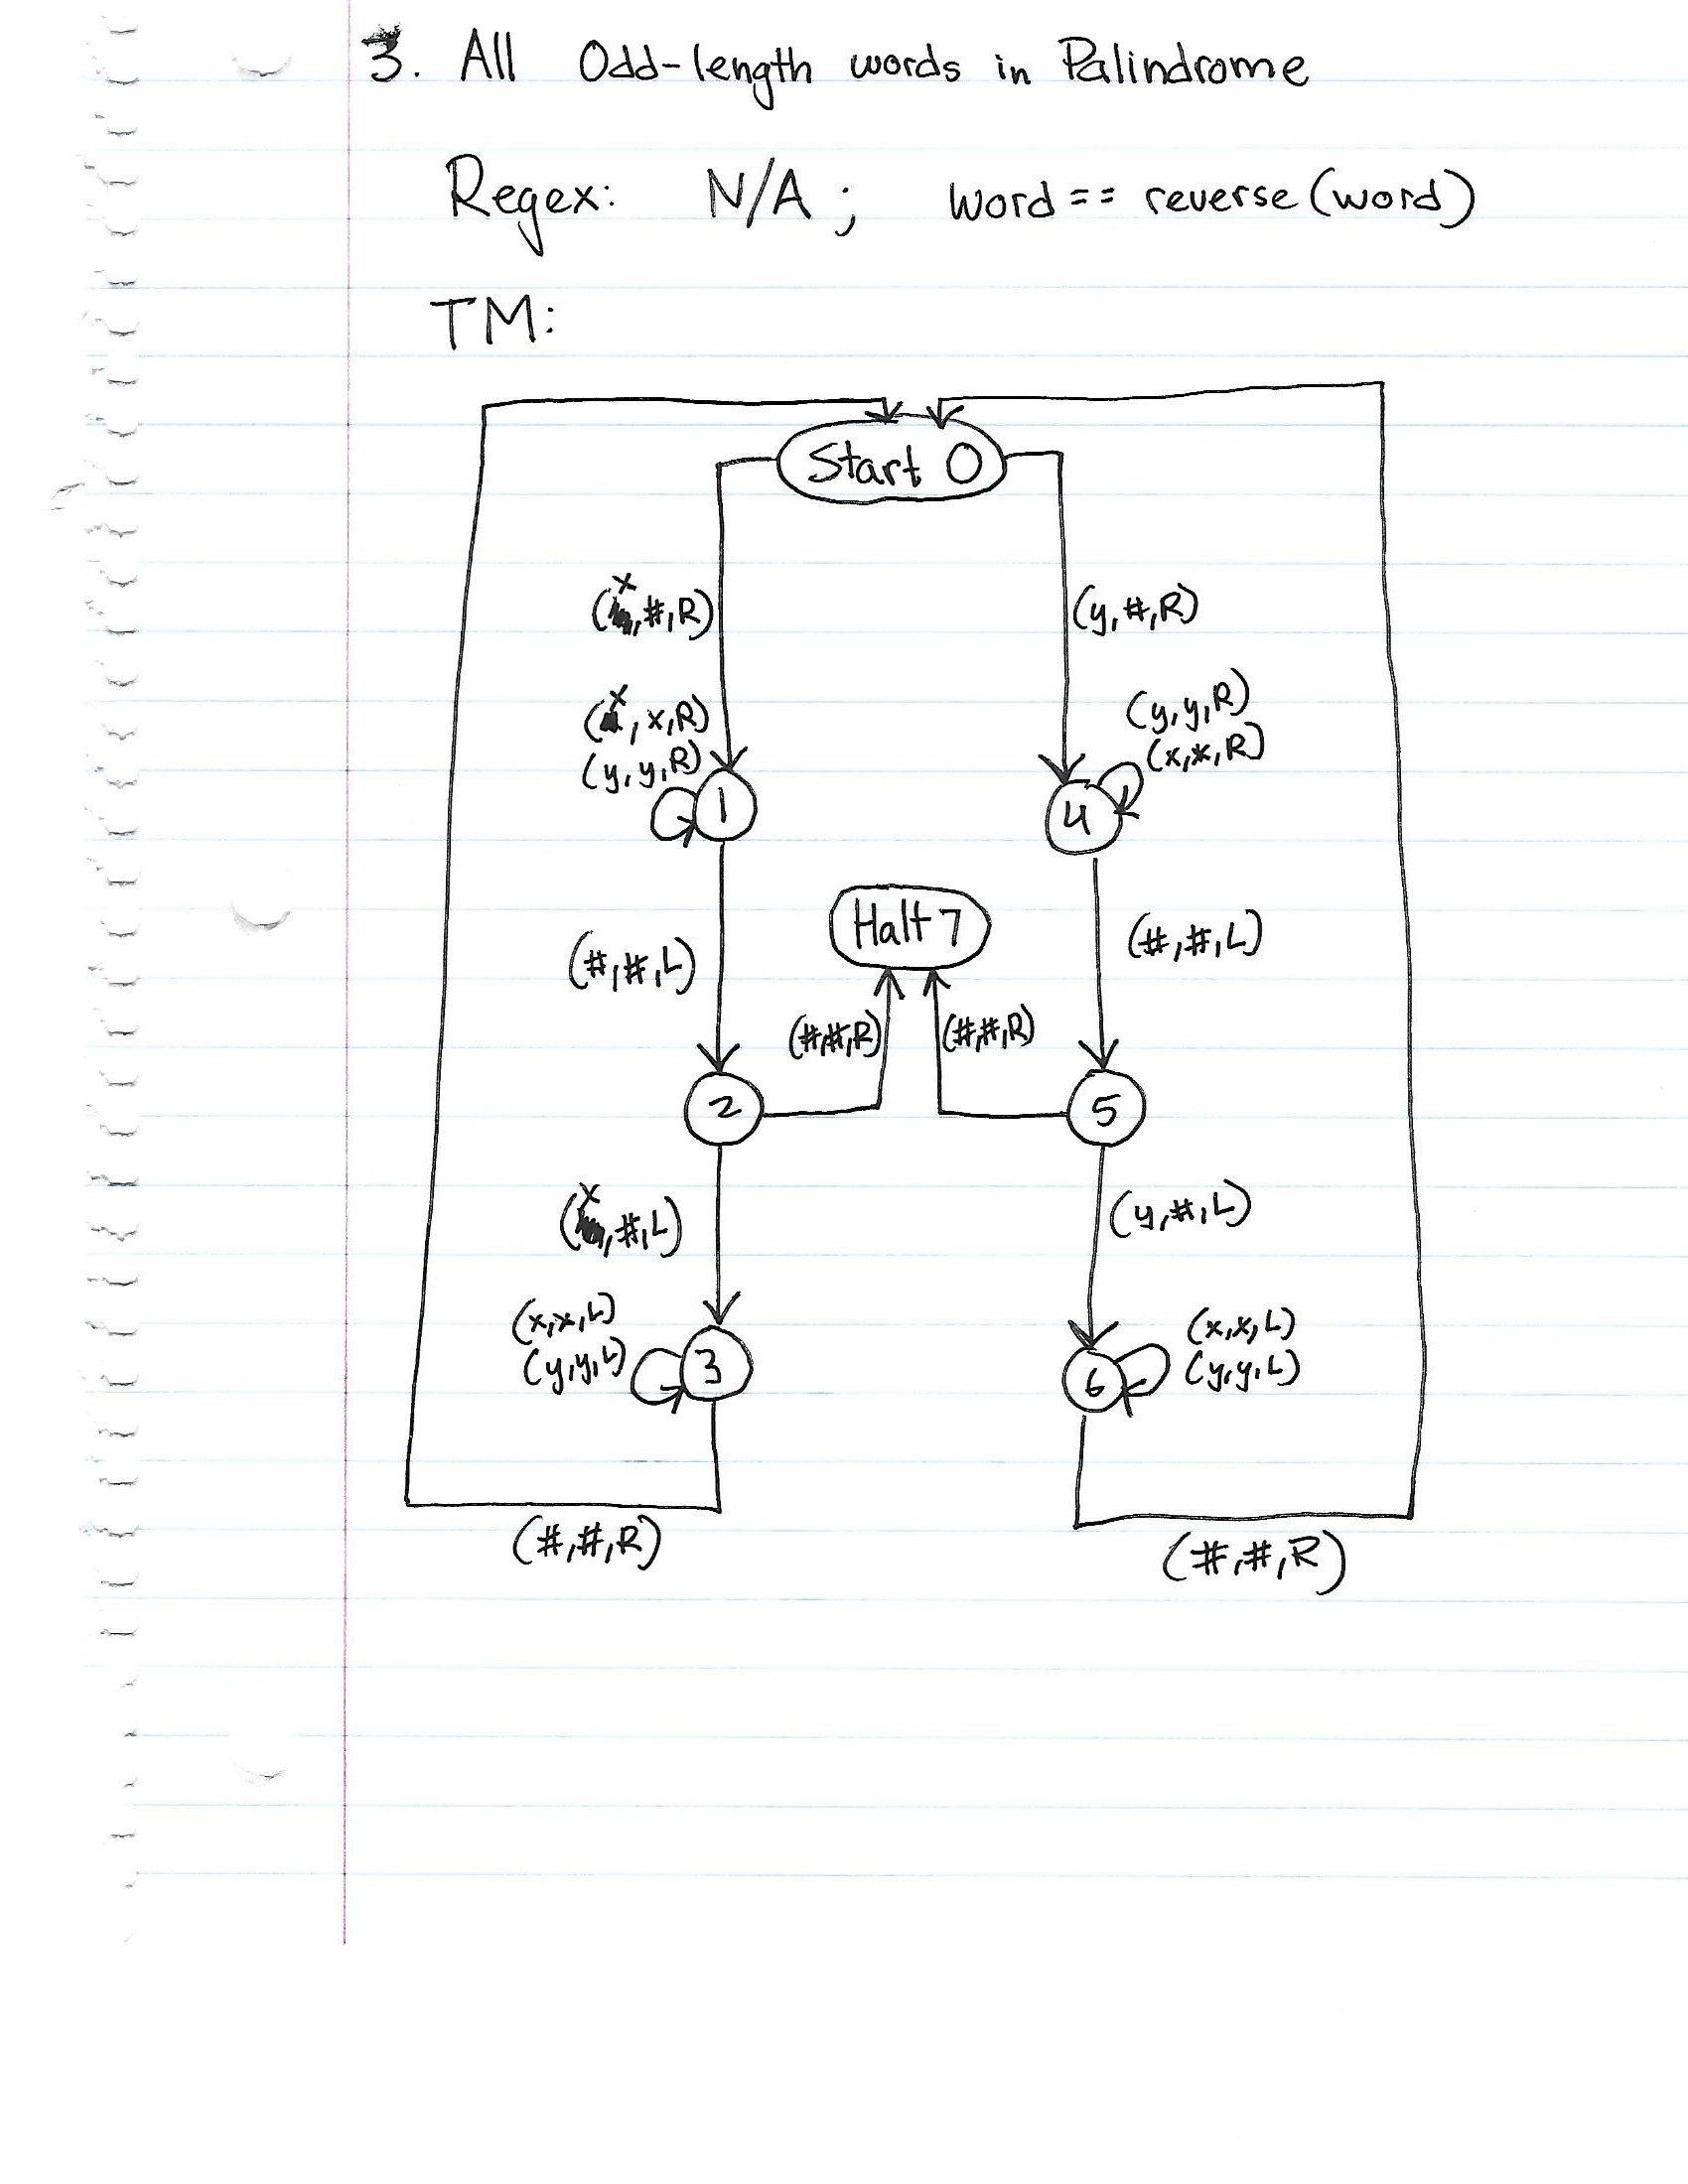 3. All Odd-length words in Palindrome
Regex: N/A ; word == reverse(word)
TM:
Start 0
(x,#,R)
(y,#,R)
(x,x,R)
(y,y,R)
(y,y,R)
(x,x,R)
1
4
Halt 7
(#,#,L)
(#,#,L)
(#,#,R)
(#,#,R)
2
5
(x,#,L)
(y,#,L)
(x,x,L)
(y,y,L)
(x,x,L)
(y,y,L)
3
6
(#,#,R)
(#,#,R)